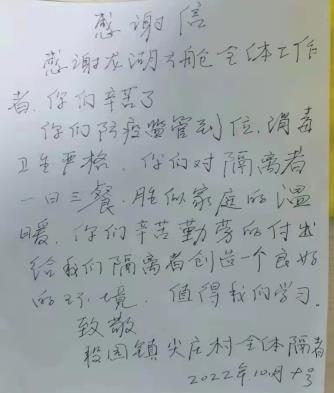 感谢信
感谢龙湖方舱全体工作
者.你们辛苦了
你们防疫监管到位.消毒
卫生严格.你们对隔离者
一日三餐.胜似家庭的温
暖.你们辛苦勤劳的付出
给我们隔离者创造一个良好
的环境.值得我们学习.
致敬
园镇尖庄村全体隔者
2022年10月